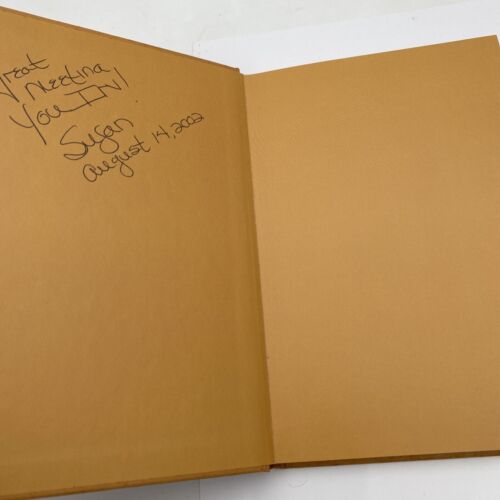 Great
Meeting
You
Susan
August 14, 2002